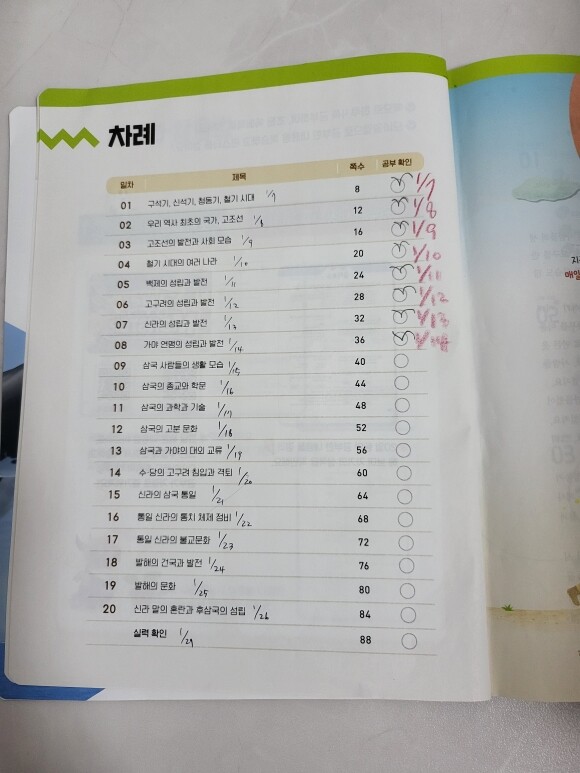 차례
일차 제목 쪽수 공부 확인
01 구석기, 신석기, 청동기, 철기 시대 1/7 8 1/7
02 우리 역사 최초의 국가, 고조선 1/8 12 1/8
03 고조선의 발전과 사회 모습 1/9 16 1/9
04 철기 시대의 여러 나라 1/10 20 1/10
05 백제의 성립과 발전 1/11 24 1/11
06 고구려의 성립과 발전 1/12 28 1/12
07 신라의 성립과 발전 1/13 32 1/13
08 가야 연맹의 성립과 발전 1/14 36
09 삼국 사람들의 생활 모습 1/15 40
10 삼국의 종교와 학문 1/16 44
11 삼국의 과학과 기술 1/17 48
12 삼국의 고분 문화 1/18 52
13 삼국과 가야의 대외 교류 1/19 56
14 수·당의 고구려 침입과 격퇴 1/20 60
15 신라의 삼국 통일 1/21 64
16 통일 신라의 통치 체제 정비 1/22 68
17 통일 신라의 불교문화 1/23 72
18 발해의 건국과 발전 1/24 76
19 발해의 문화 1/25 80
20 신라 말의 혼란과 후삼국의 성립 1/26 84
실력 확인 1/29 88
매일